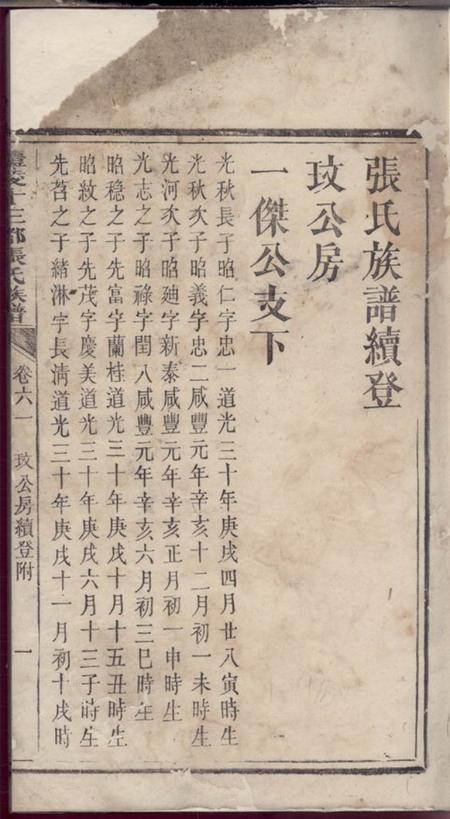 張氏族譜續登
玟公房
一傑公支下
光秋長子昭仁字忠一道光三十年庚戌四月廿八寅時生
光秋次子昭義字忠二咸豐元年辛亥十二月初一未時生
光河次子昭廸字新泰咸豐元年辛亥正月初一申時生
光志之子昭祿字閏八咸豐元年辛亥六月初三巳時生
昭稳之子先富字蘭桂道光三十年庚戌十月十五丑時生
昭紋之子先茂字慶美道光三十年庚戌六月十三子時生
先苕之子緒淋字長清道光三十年庚戌十一月初十戌時
醴陵十三都張氏族譜 卷六一 玟公房續登附 一